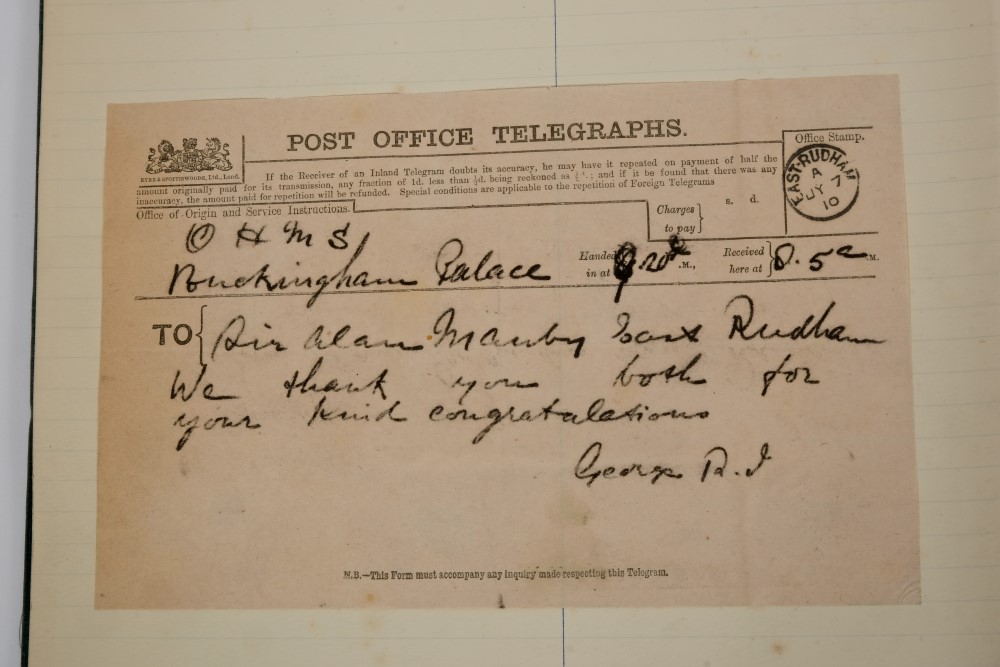 POST OFFICE TELEGRAPHS.
EYRE & SPOTTISWOODE, Ltd., Lond.
If the Receiver of an Inland Telegram doubts its accuracy, he may have it repeated on payment of half the
amount originally paid for its transmission, any fraction of 1d. less than ½d. being reckoned as ½d.; and if it be found that there was any
inaccuracy, the amount paid for repetition will be refunded. Special conditions are applicable to the repetition of Foreign Telegrams
Office Stamp.
EAST·RUDHAM
A
JY 7
10
Office of Origin and Service Instructions.
s. d.
Charges
to pay
O H M S
Buckingham Palace
Handed
in at
.20
.M.,
Received
here at
8.5
.M.
TO
Sir Alan Manby East Rudham
We thank you both for
your kind congratulations
George R.I
N.B.—This Form must accompany any inquiry made respecting this Telegram.